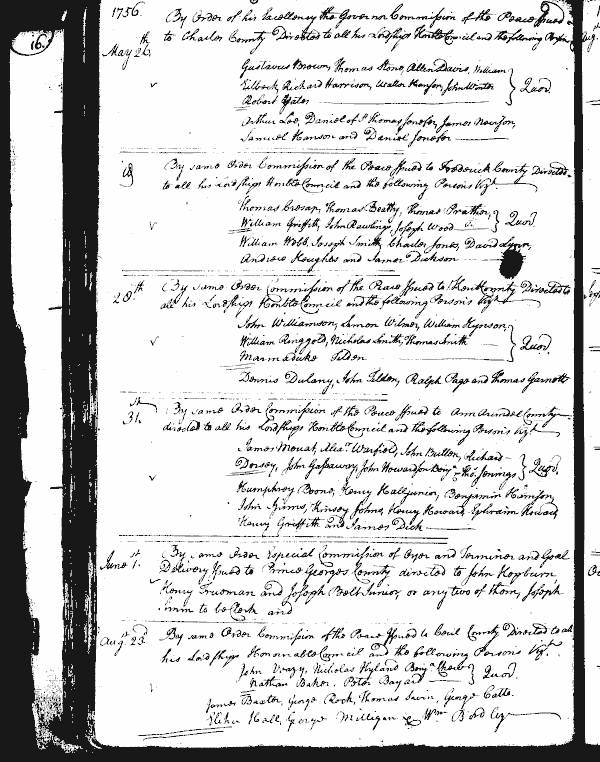 16.
1756. By Order of his Excellency the Governor Commission of the Peace Issued
May 26th to Charles County Directed to all his Lordships Honble Council and the following Persons
Gustavus Brown, Thomas Stone, Allen Davis, William
Eilbeck, Richard Harrison, Walter Hanson, John Winter } Quod.
Robert Yates
Arthur Lee, Daniel of St Thomas Jenefer, James Nowson,
Samuel Hanson and Daniel Jenefer
By same Order Commission of the Peace Issued to Frederick County Directed
to all his Lordships Honble Council and the following Persons Vizt
Thomas Cresap, Thomas Beatty, Thomas Prather,
William Griffith, John Rawlings, Joseph Wood } Quod.
William Webb, Joseph Smith, Charles Jones, David Lynn,
Andrew Heughes and James Dickson
28th By same Order Commission of the Peace Issued to Kent County Directed to
all his Lordships Honble Council and the following Persons Vizt
John Williamson, Simon Wilmer, William Hynson,
William Ringgold, Nicholas Smith, Thomas Smith } Quod.
Marmaduke Tilden
Dennis Dulany, John Tilden, Ralph Page and Thomas Garnett
31.st By same Order Commission of the Peace Issued to Ann Arundel County
directed to all his Lordships Honble Council and the following Persons Vizt
James Mouat, Alexr Warfield, John Bullen, Richard
Dorsey, John Gassaway, John Howard son Benja Tho: Jenings } Quod.
Humphrey Boone, Henry Hall junior, Benjamin
John Hinsey Johns, Henry Howard, Ephraim Howard,
Henry Griffith and James Dick
June 1st. By same Order Especial Commission of Oyer and Terminer and Goal
Delivery Issued to Prince Georges County directed to John Hepburn
Henry Trueman and Joseph Belt Junior, or any two of them, Joseph
to be Clerk and
Augt 23d By same Order Commission of the Peace Issued to Cecil County Directed to all
his Lordships Honourable Council and the following Persons Vizt.
John Veazy, Nicholas Hyland Benja Chew
Nathan Baker, Peter Bayard } Quod.
James Baxter, George Rock, Thomas Savin, George Catto.
Elihu Hall, George Milligan & Wm Bord Esqr